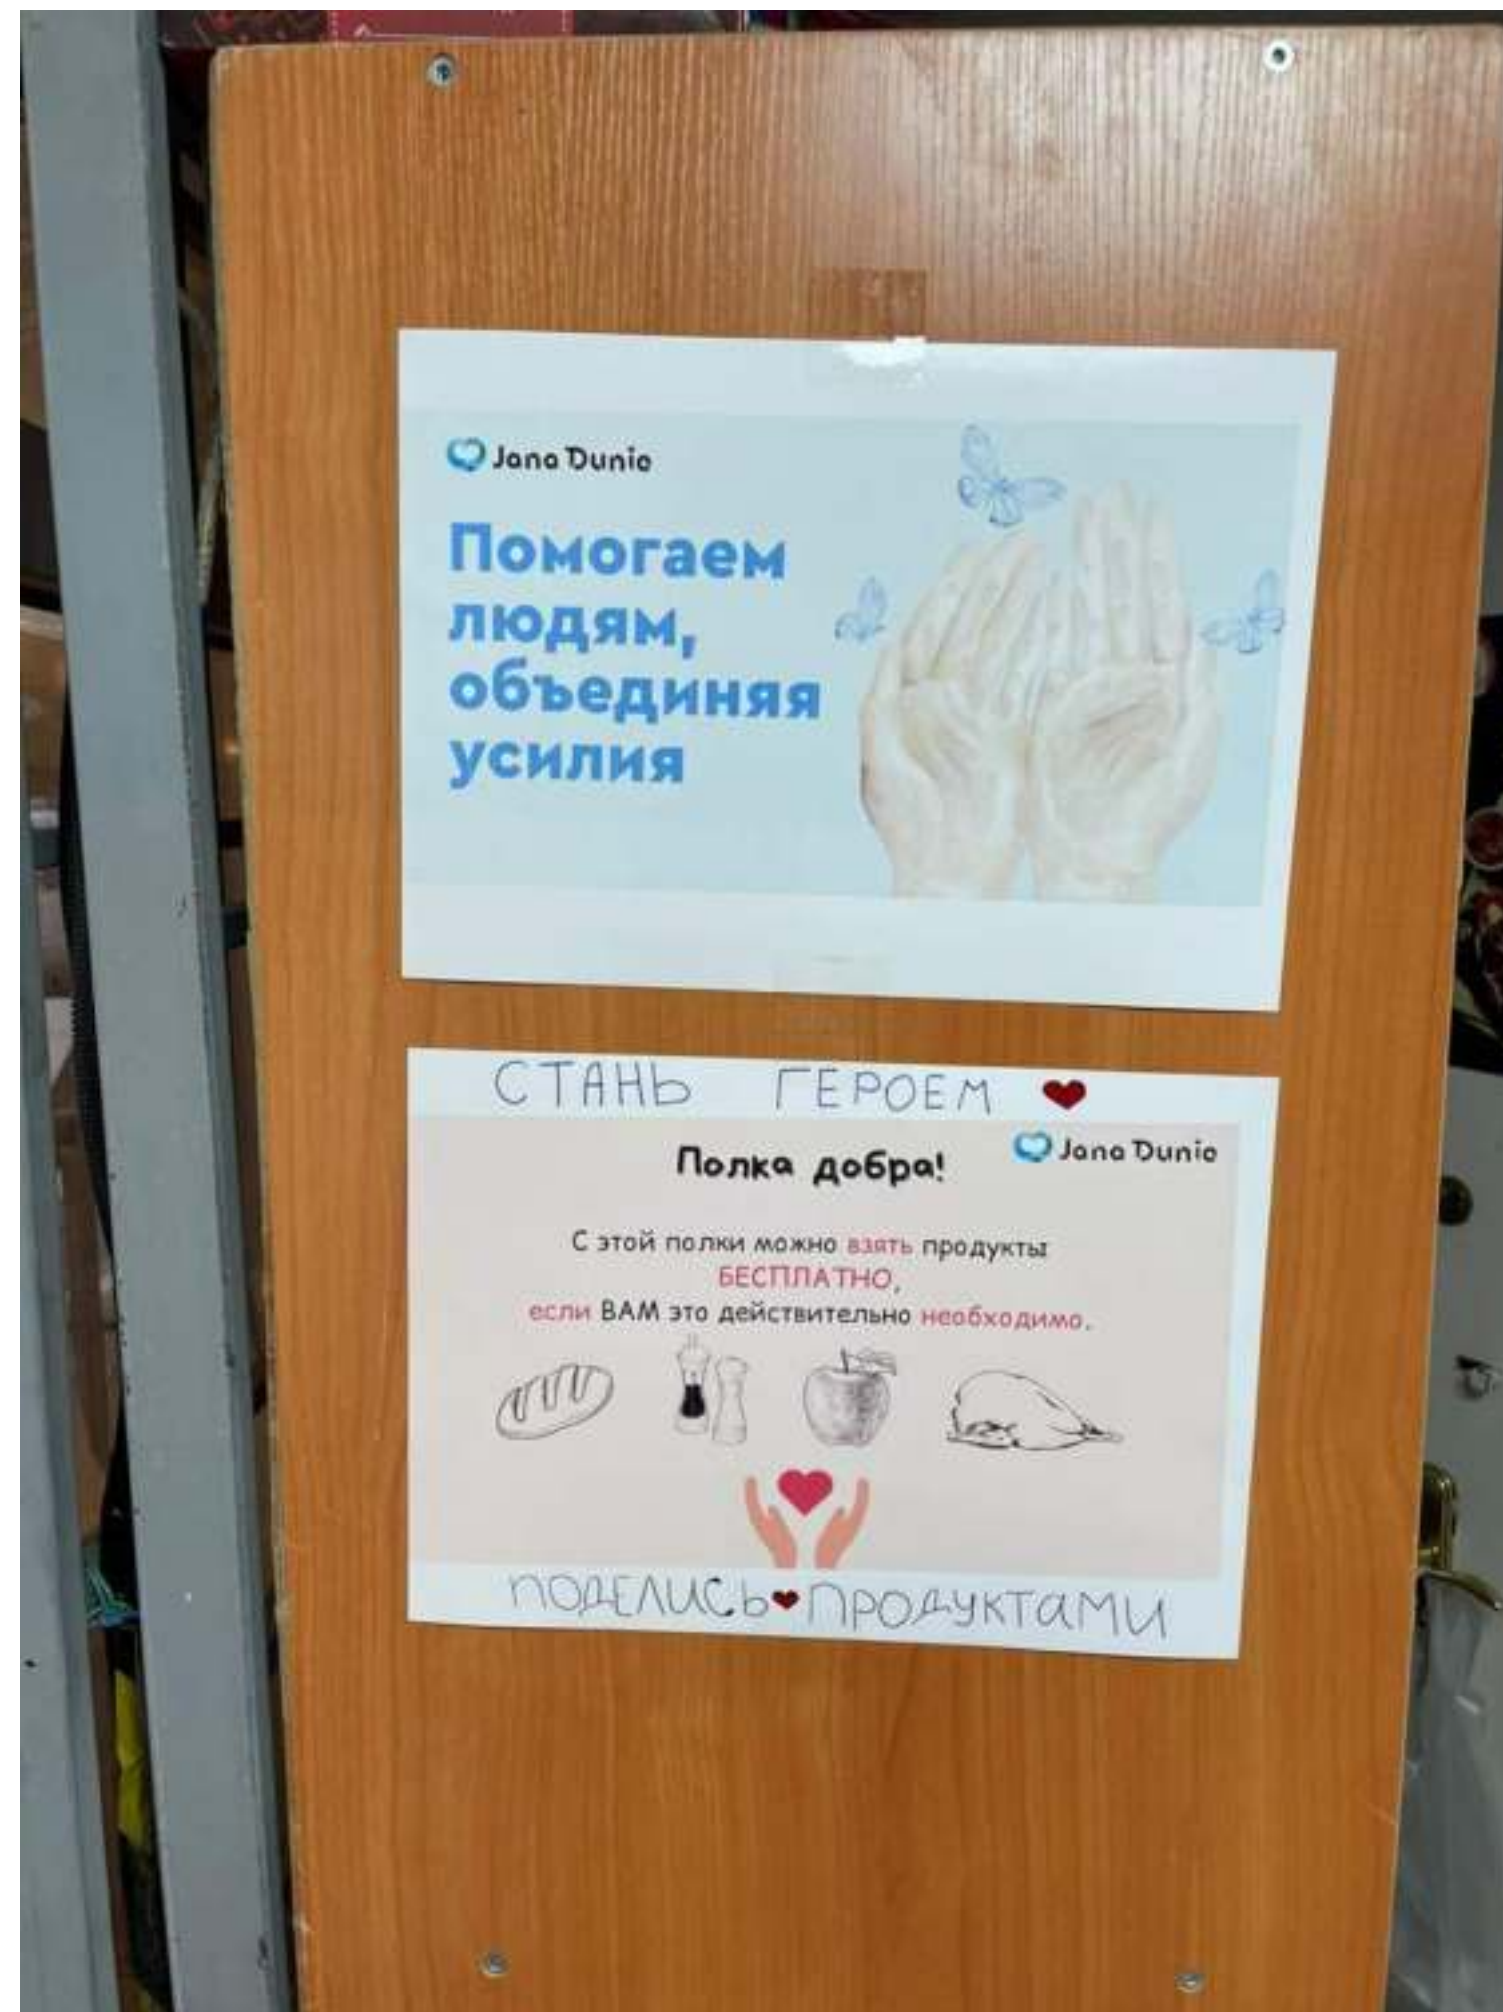 Jana Dunie
Помогаем
людям,
объединяя
усилия
СТАНЬ ГЕРОЕМ
Jana Dunie
Полка добра!
С этой полки можно взять продукты
БЕСПЛАТНО,
если ВАМ это действительно необходимо.
ПОДЕЛИСЬ ПРОДУКТАМИ